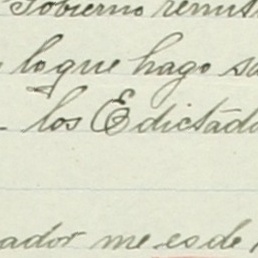 Gobierno remit
lo que hago sa
los Edictado
ador me es de